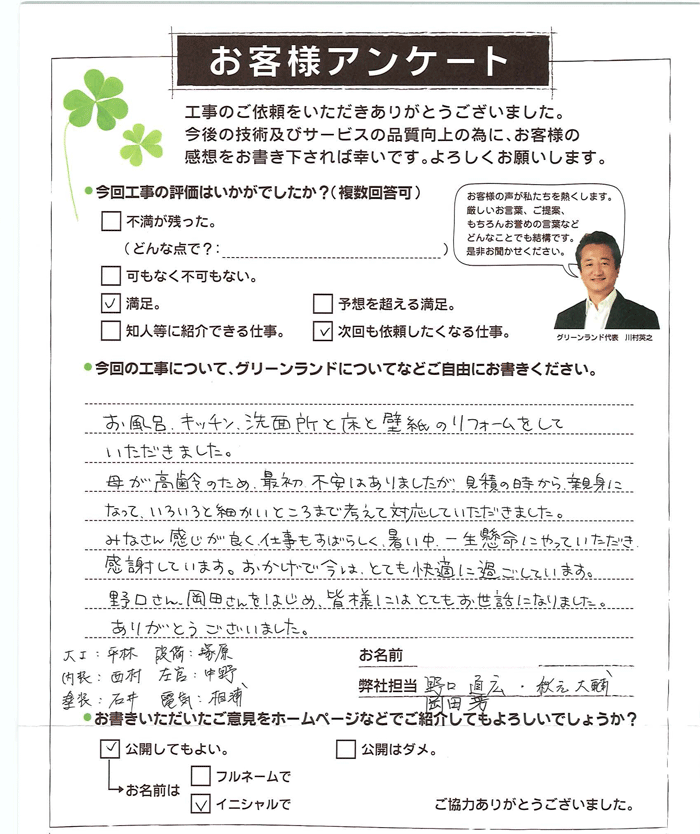 お客様アンケート
工事のご依頼をいただきありがとうございました。
今後の技術及びサービスの品質向上の為に、お客様の
感想をお書き下されば幸いです。よろしくお願いします。
今回工事の評価はいかがでしたか?(複数回答可)
お客様の声が私たちを熱くします。
厳しいお言葉、ご提案、
もちろんお誉めの言葉など
どんなことでも結構です。
是非お聞かせください。
グリーンランド代表 川村英之
不満が残った。
(どんな点で?: )
可もなく不可もない。
満足。 予想を超える満足。
知人等に紹介できる仕事。 次回も依頼したくなる仕事。
今回の工事について、グリーンランドについてなどご自由にお書きください。
お風呂、キッチン、洗面所と床と壁紙のリフォームをして
いただきました。
母が高齢のため、最初、不安はありましたが、見積の時から、親身に
なって、いろいろと細かいところまで考えて対応していただきました。
みなさん感じが良く、仕事もすばらしく、暑い中、一生懸命にやっていただき、
感謝しています。おかげで今は、とても快適に過ごしています。
野口さん、岡田さんをはじめ、皆様にはとてもお世話になりました。
ありがとうございました。
大工:平林 設備:塚原
内装:西村 左官:中野
塗装:石井 電気:相浦
お名前
弊社担当 野口 直広・秋元 大輔
岡田
お書きいただいたご意見をホームページなどでご紹介してもよろしいでしょうか?
公開してもよい。 公開はダメ。
お名前は フルネームで
イニシャルで
ご協力ありがとうございました。